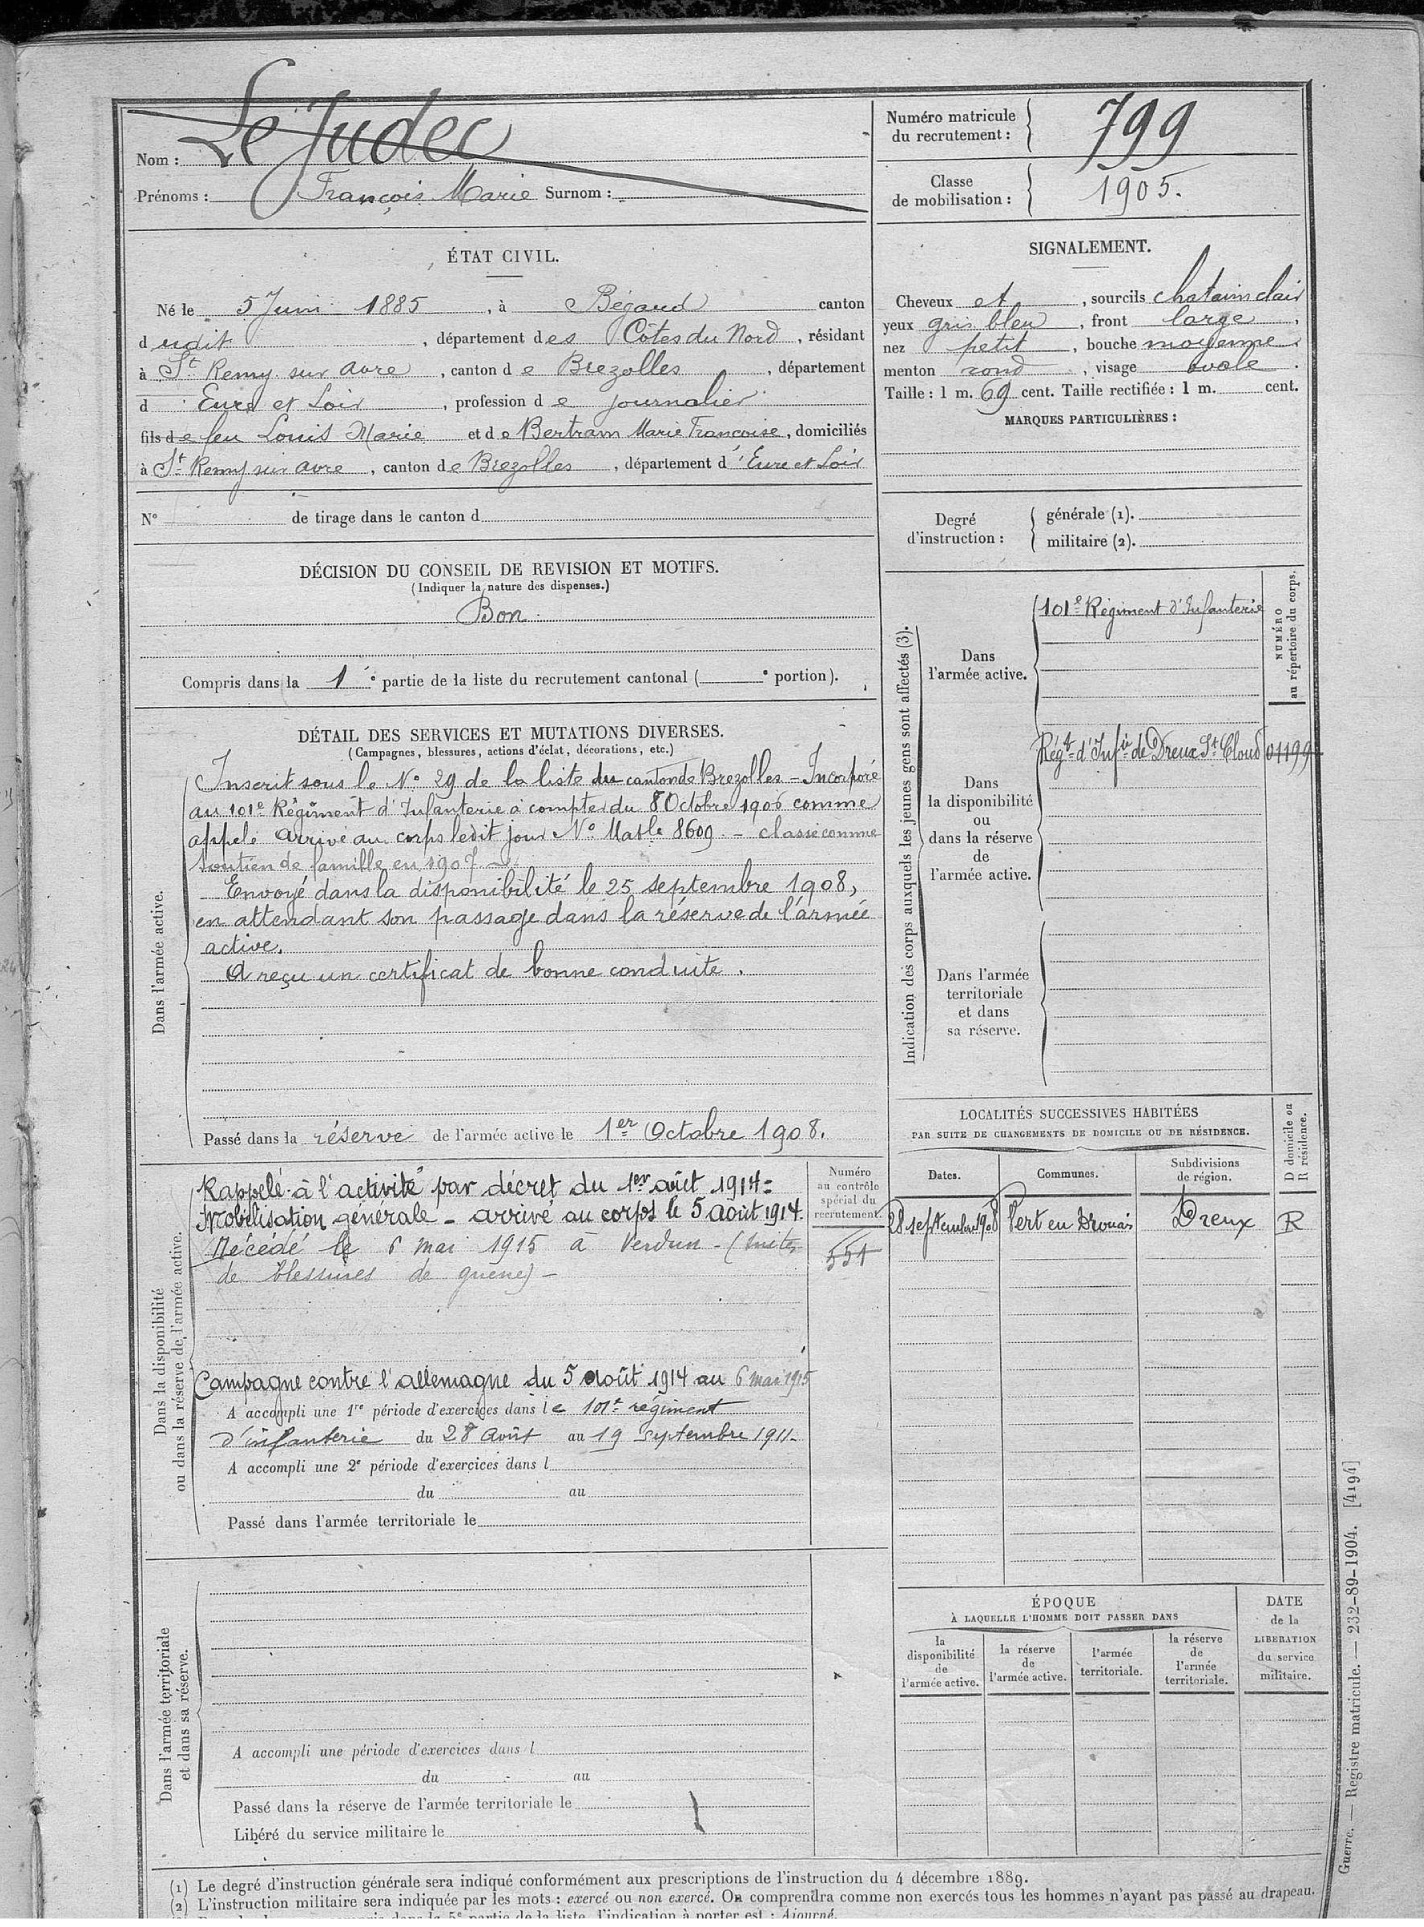 Nom : Le Judec
Prénoms : François Marie Surnom :
Numéro matricule du recrutement : 799
Classe de mobilisation : 1905.
ÉTAT CIVIL.
Né le 5 Juin 1885, à Bégard canton
dudit, département des Côtes du Nord, résidant
à St Remy sur avre, canton de Brezolles, département
d Eure et Loir, profession de journalier
fils de feu Louis Marie et de Bertram Marie Françoise, domiciliés
à St Remy sur avre, canton de Brezolles, département d'Eure et Loir
N° de tirage dans le canton d
SIGNALEMENT.
Cheveux et, sourcils chatain clair
yeux gris bleu, front large,
nez petit, bouche moyenne
menton rond, visage ovale.
Taille : 1 m. 69 cent. Taille rectifiée : 1 m. cent.
MARQUES PARTICULIÈRES :
Degré d'instruction :
générale (1).
militaire (2).
DÉCISION DU CONSEIL DE REVISION ET MOTIFS.
(Indiquer la nature des dispenses.)
Bon
Compris dans la 1e partie de la liste du recrutement cantonal ( e portion).
DÉTAIL DES SERVICES ET MUTATIONS DIVERSES.
(Campagnes, blessures, actions d'éclat, décorations, etc.)
Dans l'armée active.
Inscrit sous le N° 29 de la liste du canton de Brezolles – Incorporé
au 101e Régiment d'Infanterie à compter du 8 Octobre 1906 comme
appelé arrivé au corps ledit jour N° Matle 8609. – classé comme
soutien de famille en 1907
Envoyé dans la disponibilité le 25 septembre 1908,
en attendant son passage dans la réserve de l'armée
active.
A reçu un certificat de bonne conduite.
Passé dans la réserve de l'armée active le 1er Octobre 1908.
Dans la disponibilité
ou dans la réserve de l'armée active.
Rappelé à l'activité par décret du 1er août 1914:
Mobilisation générale – arrivé au corps le 5 août 1914.
Décédé le 6 mai 1915 à Verdun – (suites
de blessures de guerre) –
Campagne contre l'allemagne du 5 août 1914 au 6 mai 1915
A accompli une 1re période d'exercices dans le 101e régiment
d'infanterie du 28 Août au 19 Septembre 1911.
A accompli une 2e période d'exercices dans l
du au
Passé dans l'armée territoriale le
Numéro
au contrôle
spécial du
recrutement.
554
Dans l'armée territoriale
et dans sa réserve.
A accompli une période d'exercices dans l
du au
Passé dans la réserve de l'armée territoriale le
Libéré du service militaire le
Indication des corps auxquels les jeunes gens sont affectés (3).
NUMÉRO
au répertoire du corps.
Dans
l'armée active.
101e Régiment d'Infanterie
Dans
la disponibilité
ou
dans la réserve
de
l'armée active.
Régt d'Infie de Dreux St Cloud 01199
Dans l'armée
territoriale
et dans
sa réserve.
LOCALITÉS SUCCESSIVES HABITÉES
PAR SUITE DE CHANGEMENTS DE DOMICILE OU DE RÉSIDENCE.
D domicile ou
R résidence.
Dates. Communes. Subdivisions
de région.
28 septembre 1908 Vert en Drouais Dreux R
ÉPOQUE
À LAQUELLE L'HOMME DOIT PASSER DANS
la
disponibilité
de
l'armée active.
la réserve
de
l'armée active.
l'armée
territoriale.
la réserve
de
l'armée
territoriale.
DATE
de la
LIBÉRATION
du service
militaire.
Guerre. — Registre matricule. — 232-89-1904. [4194]
(1) Le degré d'instruction générale sera indiqué conformément aux prescriptions de l'instruction du 4 décembre 1889.
(2) L'instruction militaire sera indiquée par les mots : exercé ou non exercé. On comprendra comme non exercés tous les hommes n'ayant pas passé au drapeau.